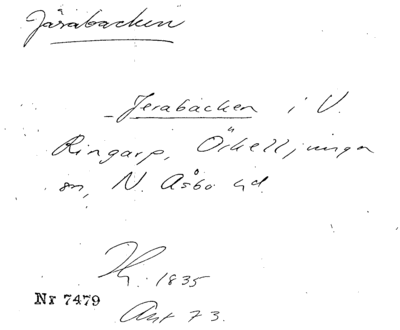 Järabacken
Jerabacken i V.
Ringarp, Örkelljunga
sn, N. Åsbo hd
Hr. 1835
Nr 7479
Ant 73.